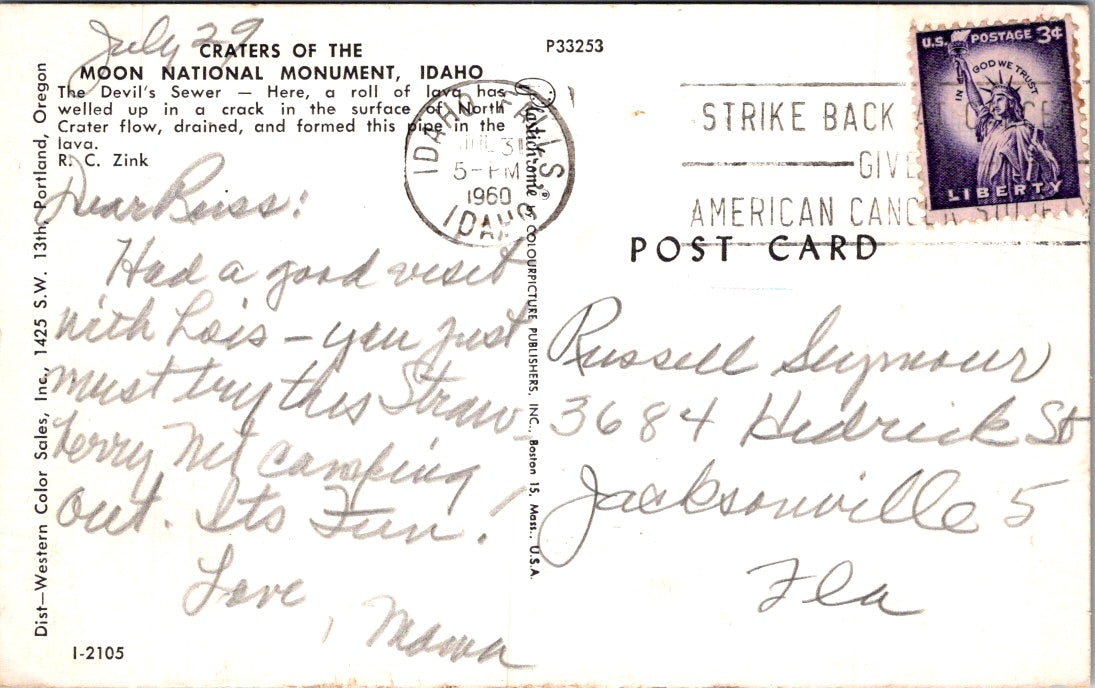 July 29
CRATERS OF THE
MOON NATIONAL MONUMENT, IDAHO
The Devil's Sewer — Here, a roll of lava has
welled up in a crack in the surface of North
Crater flow, drained, and formed this pipe in the
lava.
R. C. Zink
Dear Russ:
Had a good visit
with Lois – you just
must try this Straw-
berry, Mt camping
out. Its Fun!
Love,
Mama
I-2105
Dist—Western Color Sales, Inc., 1425 S.W. 13th, Portland, Oregon
Plastichrome ® by COLOURPICTURE PUBLISHERS, INC., Boston 15, Mass., U.S.A.
P33253
IDAHO FALLS,
JUL 31
5-PM
1960
IDAHO
STRIKE BACK
GIVE
AMERICAN CANCER SOCIETY
U.S. POSTAGE 3¢
IN GOD WE TRUST
LIBERTY
POST CARD
Russell Seymour
3684 Hedrick St
Jacksonville 5
Fla